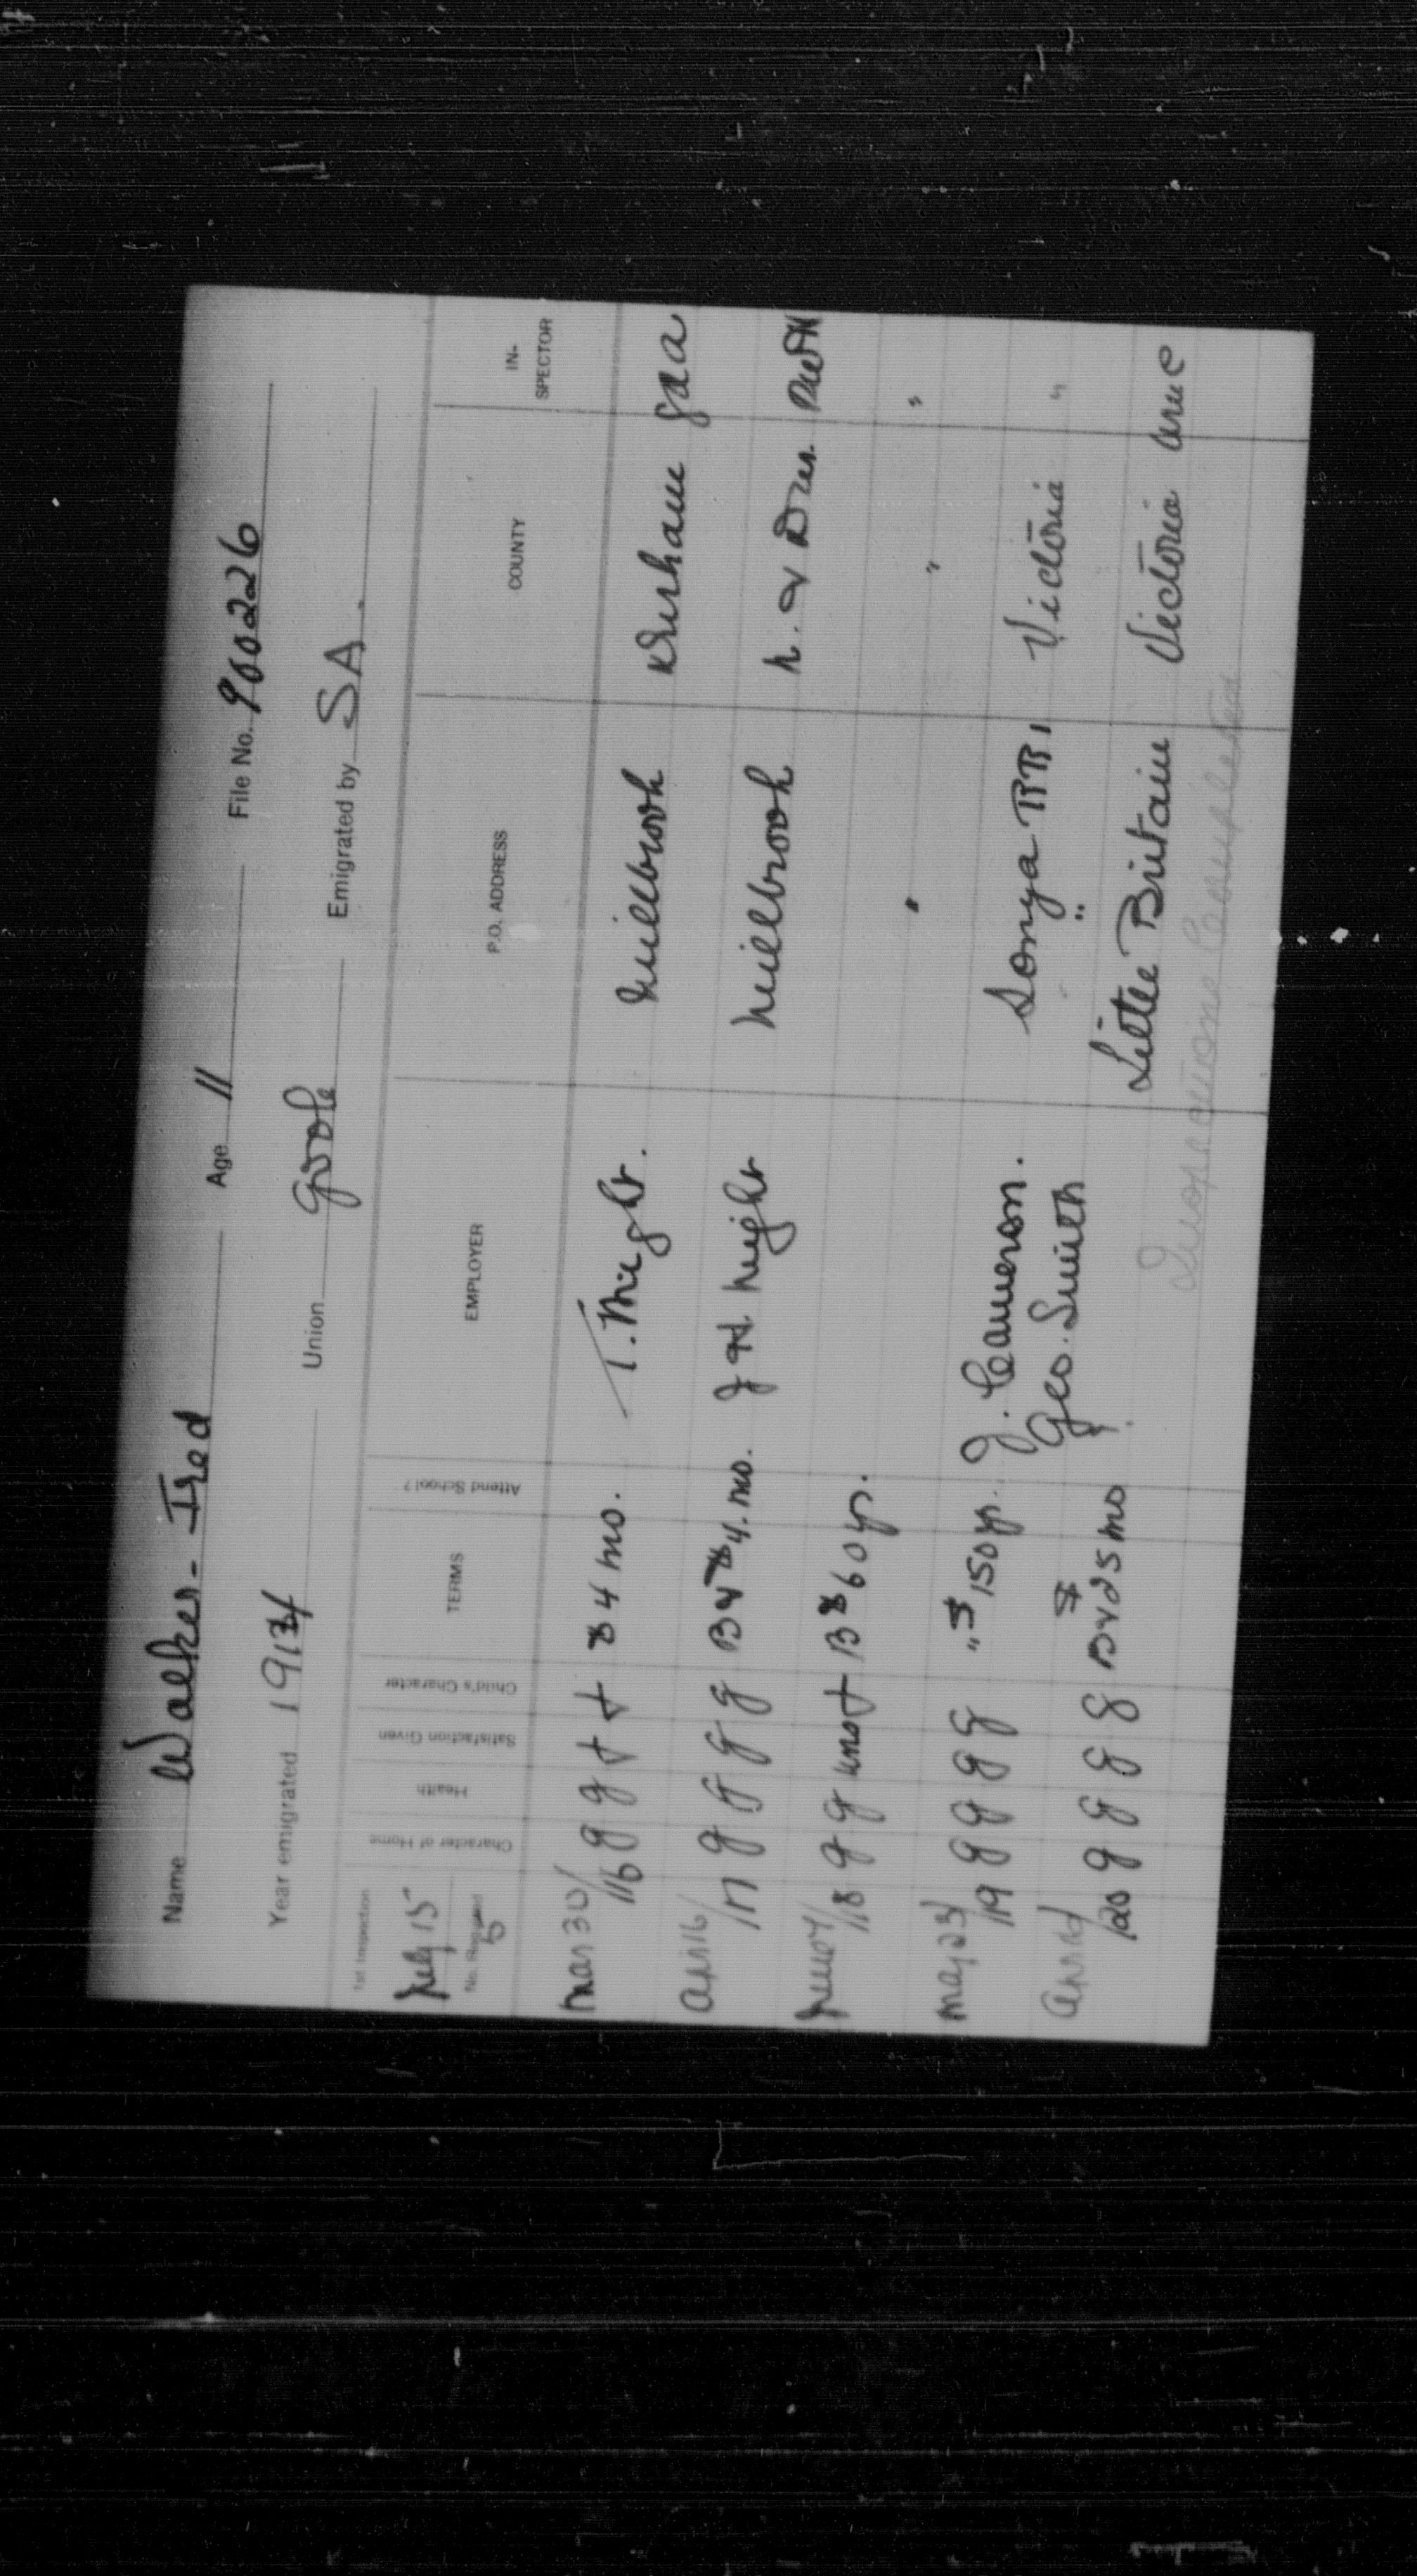 Name Walker - Fred Age 11 File No. 900226
Year emigrated 1914 Union Goole Emigrated by S A.
1st Inspection Character of Home Health Satisfaction Given Child's Character TERMS Attend School? EMPLOYER P.O. ADDRESS COUNTY IN-SPECTOR
July 15
No. Required
5
Mar 30/16 g g f f $4 mo. T. Might. Millbrook Durham
April 16/17 g g g g B & $4. mo. J H. Might Millbrook N. & Dur.
June 4/18 g g f B $60 yr. " " "
May 23/19 g g g g " $150 yr. J. Cameron. Sonya RR1 Victoria "
April /20 g g g g B & $25 mo Geo. Smith " Little Britain Victoria
Inspections Completed